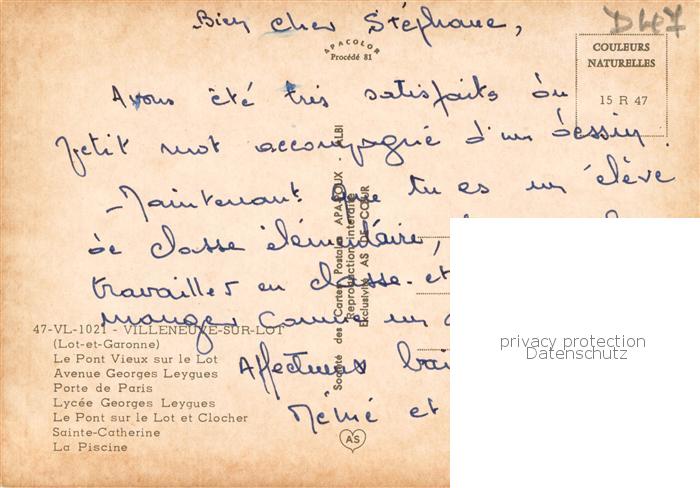 Bien cher Stéphane,
D47
APACOLOR
Procédé 81
COULEURS
NATURELLES
15 R 47
Avons été très satisfaits du
petit mot accompagné d'un dessin.
- Maintenant que tu es un élève
de classe élémentaire,
travailler en classe. et
manger comme un
Affectueux
Mémé et
Société des Cartes Postales APA-POUX - ALBI
Reproduction interdite
Exclusivité AS DE CŒUR
47-VL-1021 - VILLENEUVE-SUR-LOT
(Lot-et-Garonne)
Le Pont Vieux sur le Lot
Avenue Georges Leygues
Porte de Paris
Lycée Georges Leygues
Le Pont sur le Lot et Clocher
Sainte-Catherine
La Piscine
AS
privacy protection
Datenschutz